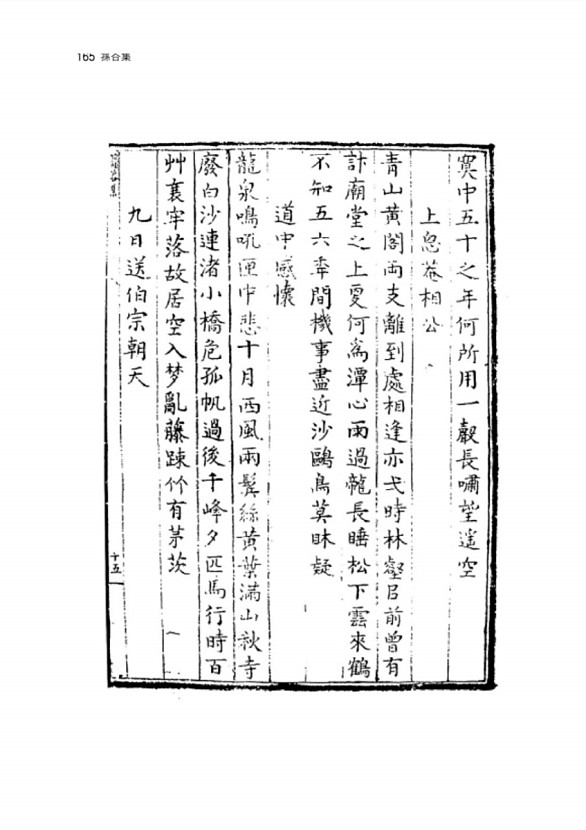 165 孫谷集
寞中五十之年何所用一嚴長嘯望遥空
上忽菴相公
青山黃閣两支離到處相逢亦戈時林壑㠯前曾有
計廟堂之上更何爲潭心雨過龍長睡松下雲來鶴
不知五六秊間機事盡近沙鷗鳥莫眜疑
道中感懷
龍泉鳴吼匣中悲十月西風兩鬂絲黃葉滿山秋寺
廢白沙連渚小橋危孤帆過後千峰夕匹馬行時百
艸衰牢落故居空入梦亂藤踈竹有茅茨
九日送伯宗朝天
十五